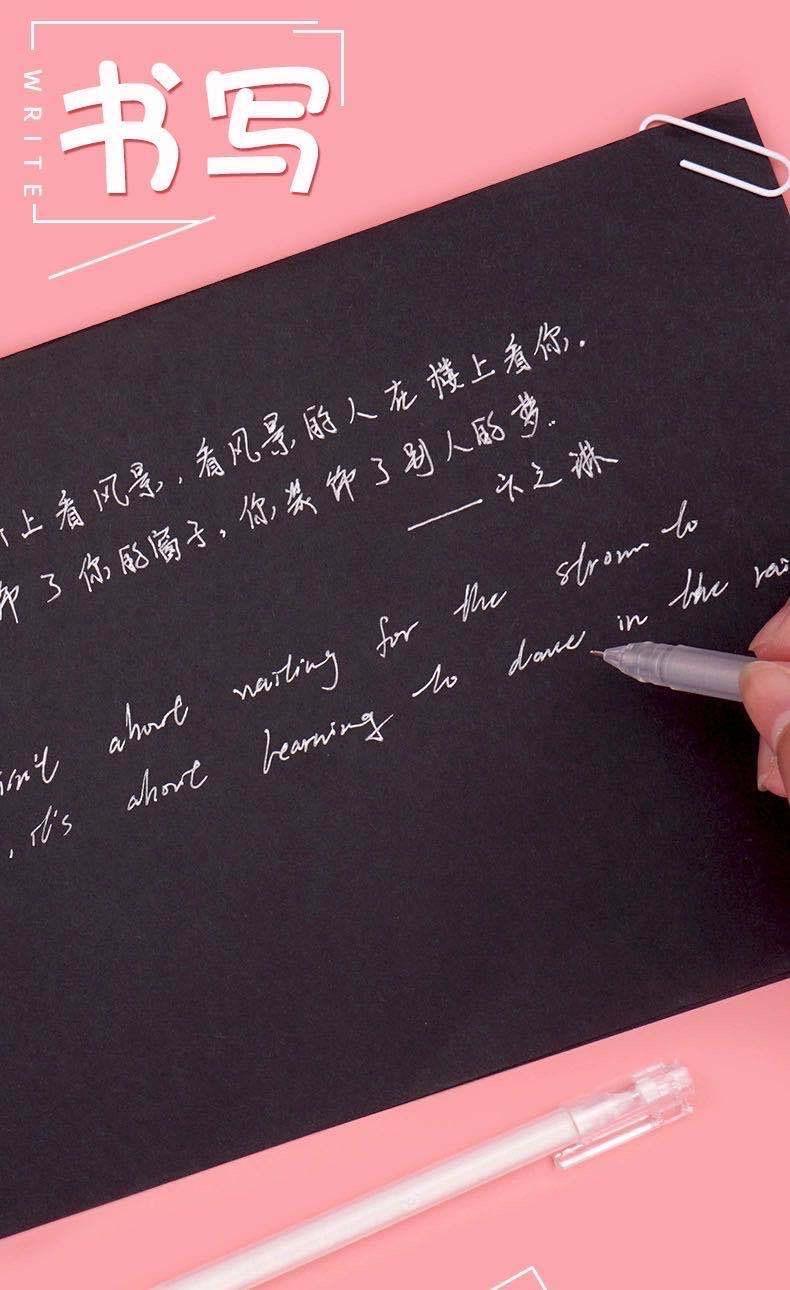 WRITE
书写
上看风景,看风景的人在楼上看你.
饰了你的窗子,你装饰了别人的梦.
——卞之琳
isn't about waiting for the strom to
, it's about learning to dance in the rai